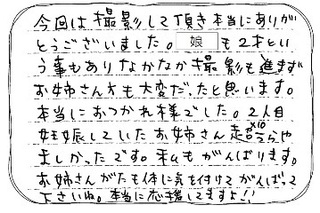 今回は撮影して頂き本当にありが
とうございました。娘も2才とい
う事もありなかなか撮影も進まず
お姉さん方も大変だったと思います。
本当におつかれ様でした。2人目
妊娠していたお姉さん超うらや
ましかったです。私もがんばります。
お姉さんがたも体に気を付けてがんばって
下さいね。本当に応援してますよ!!